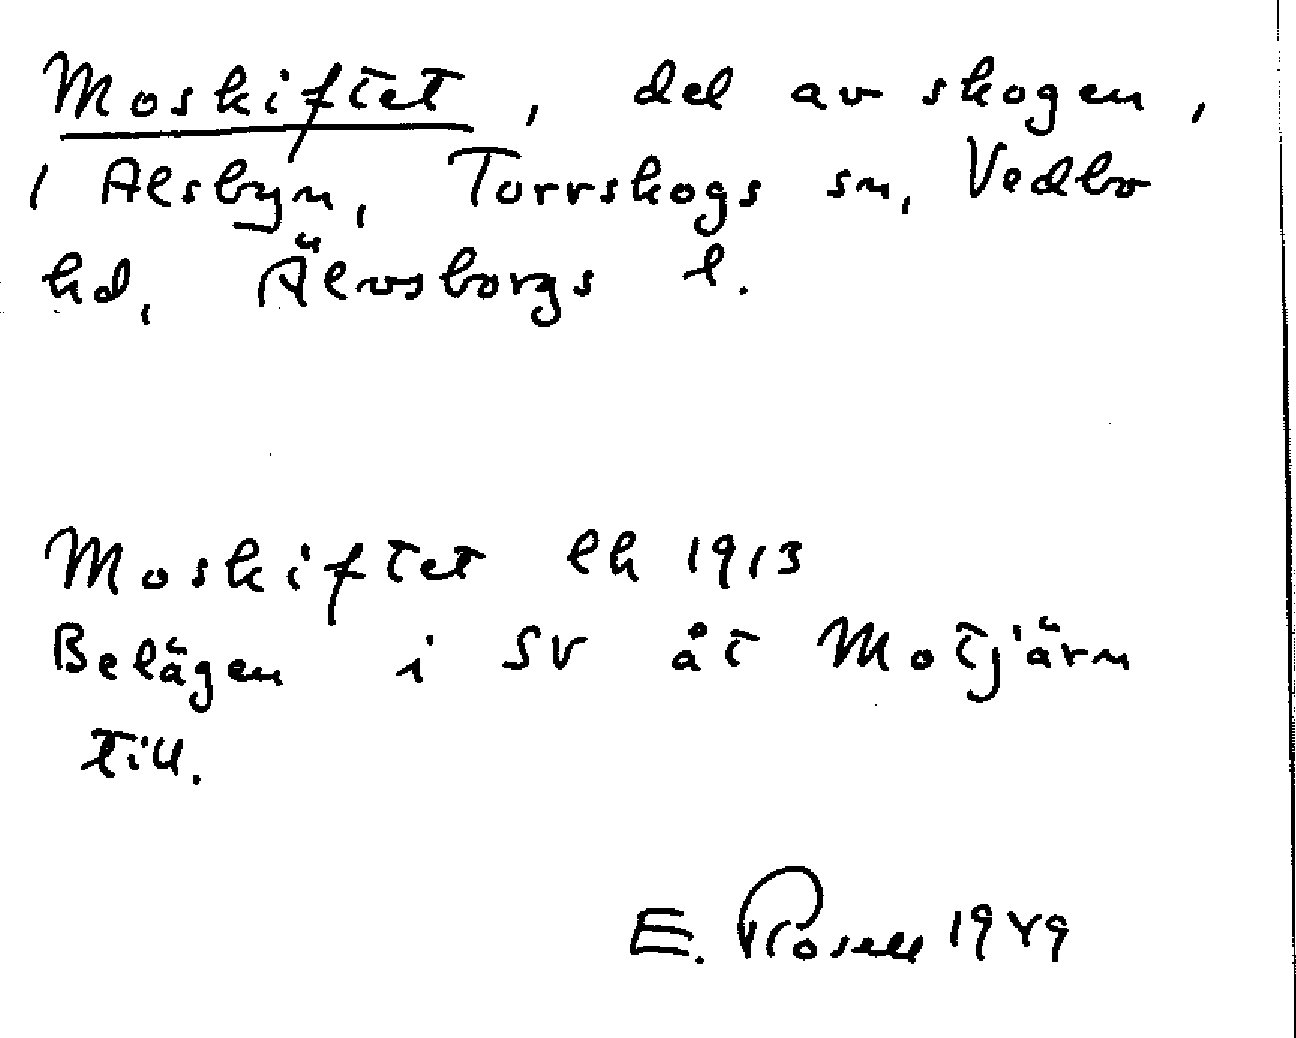 Moskiftet, del av skogen,
i Alsbyn, Torrskogs sn, Vedbo
hd, Älvsborgs l.
Moskiftet lk 1913
Belägen i SV åt Motjärn
till.
E. Rosell 1949